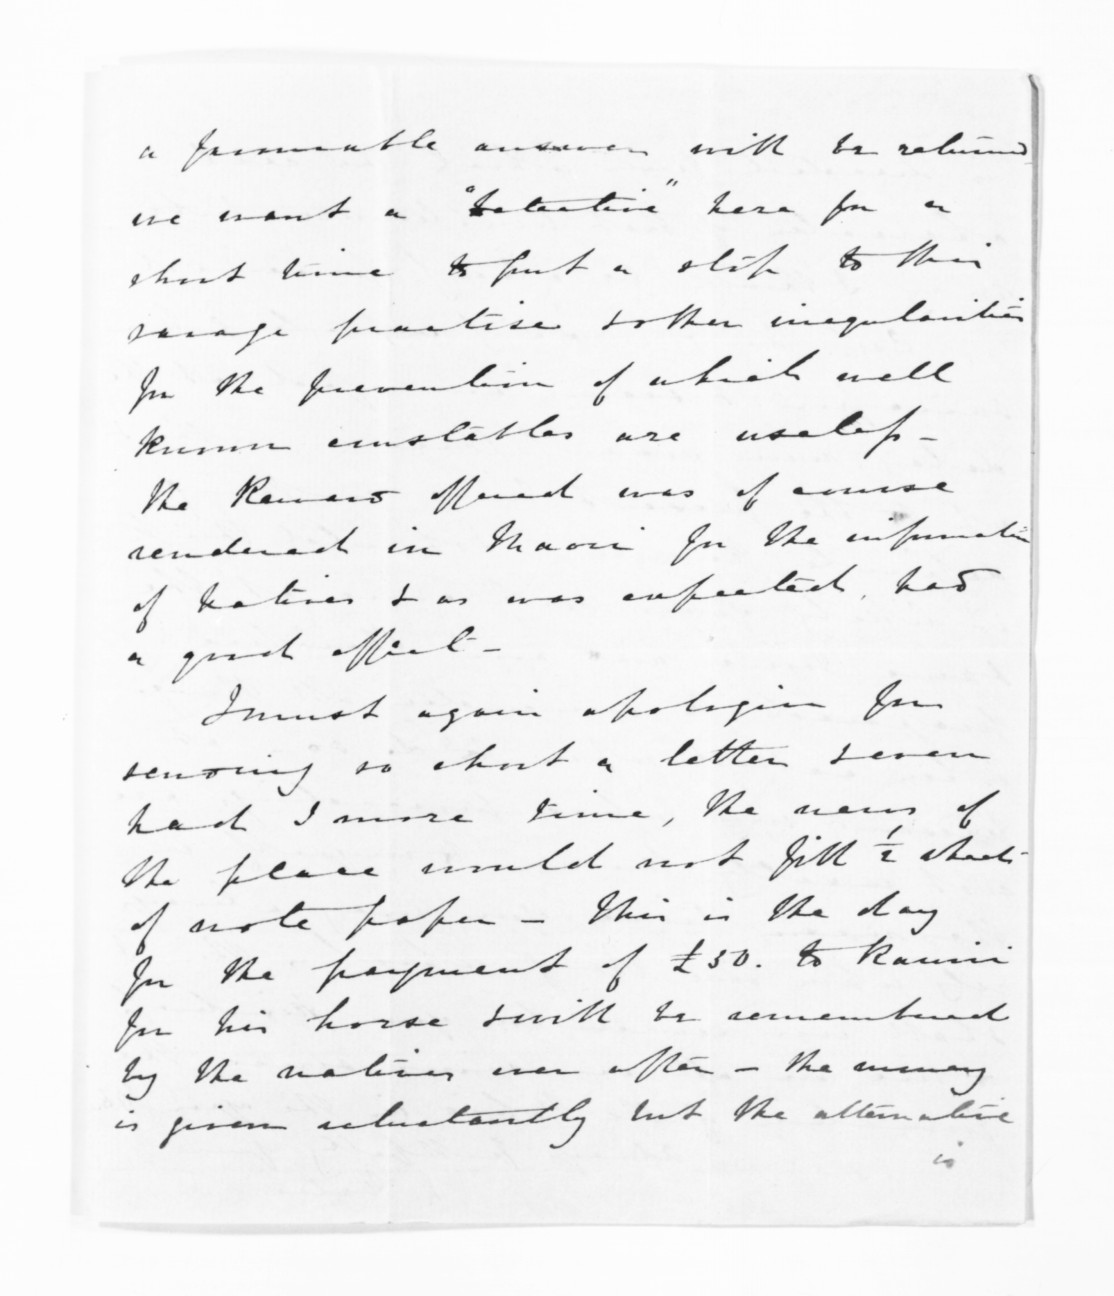 a favourable answer will be returned
we want a "detective" here for a
short time to put a stop to this
savage practise & other irregularities
for the prevention of which well
known constables are useless -
The Reward offered was of course
rendered in Maori for the information
of Natives & as was expected, had
a good effect -
I must again apologise for
sending so short a letter & even
had I more time, the news of
the place would not fill 1/2 sheet
of note paper - This is the day
for the payment of £50. to
for his horse & will be remembered
by the natives ever after - the money
is given reluctantly but the alternative
is